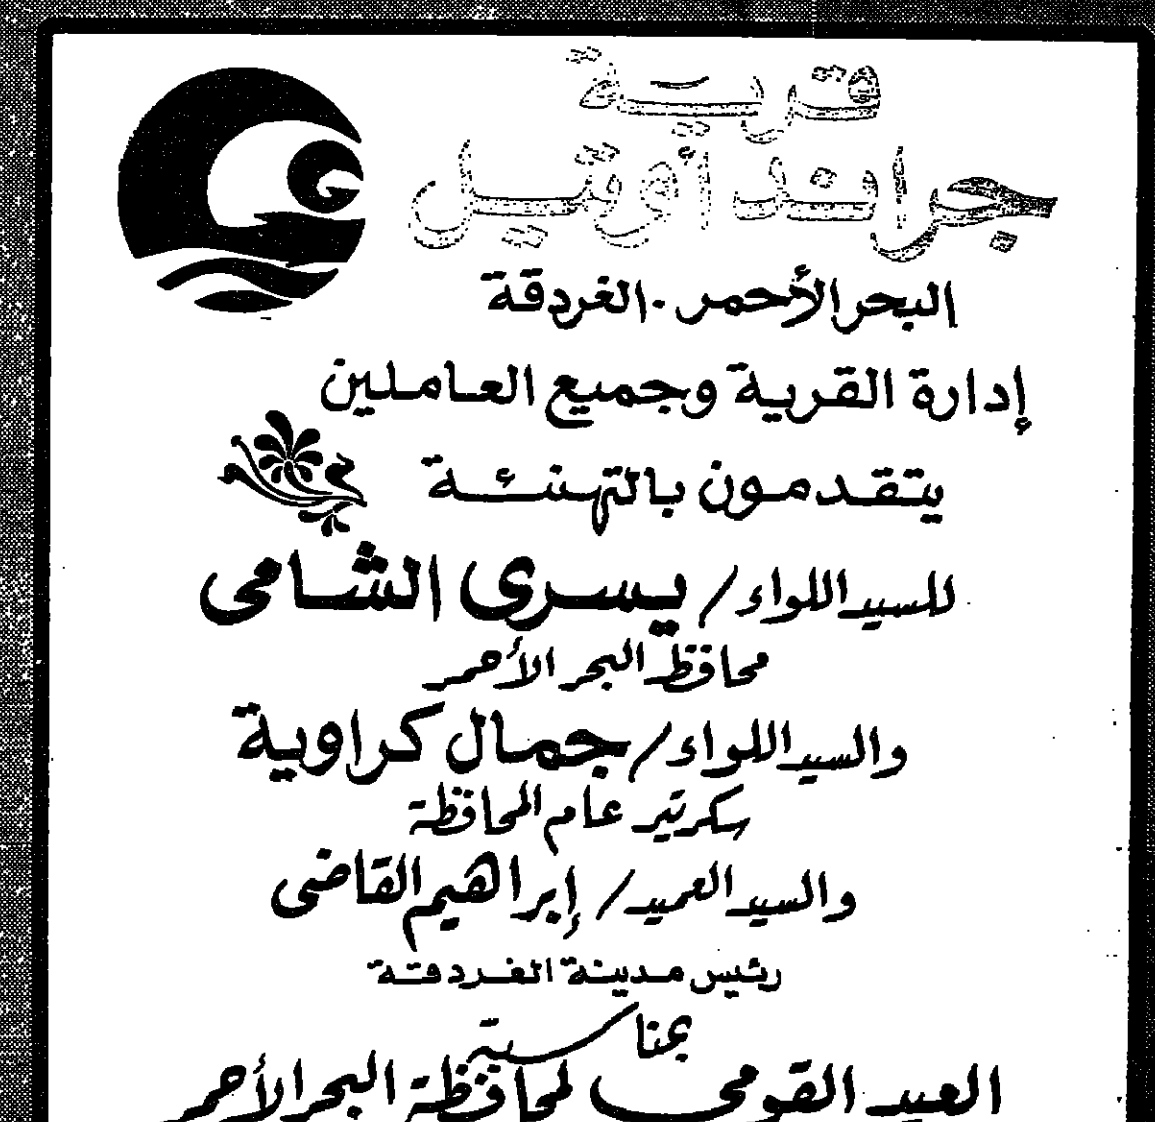 قرية
جراند أوتيل
البحر الأحمر - الغردقة
إدارة القرية وجميع العاملين
يتقدمون بالتهنئة
للسيد اللواء / يسرى الشامى
محافظ البحر الأحمر
والسيد اللواء / جمال كراوية
سكرتير عام المحافظة
والسيد العميد / إبراهيم القاضى
رئيس مدينة الغردقة
بمناسبة
العيد القومى لمحافظة البحر الأحمر